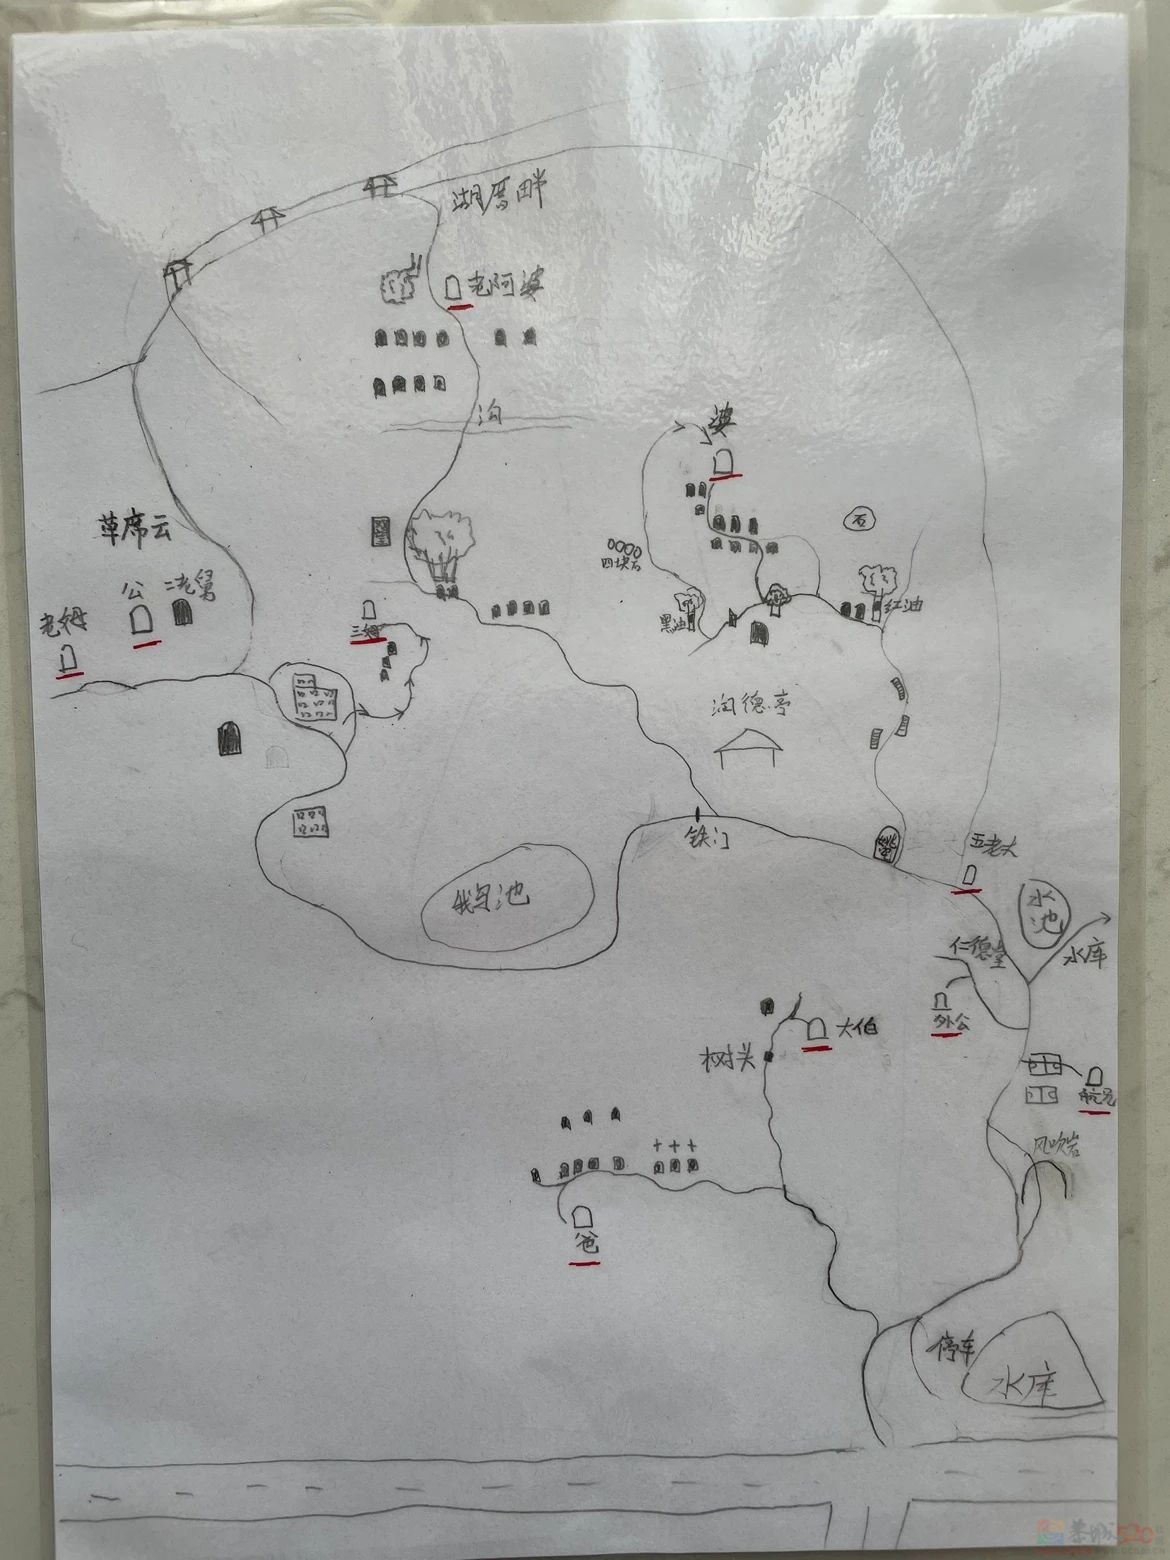 湖厝畔
老阿婆
沟
婆
石
草席云
四块石
公
二老舅
老姆
三姆
黑油
红油
润德亭
铁门
五老大
鹅母池
水池
仁德堂
水库
外公
大伯
树头
风吹岩
爸
停车
水库